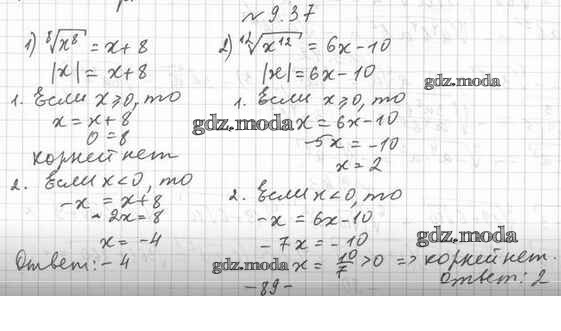 № 9.37
1) ⁸√x⁸ = x+8
|x| = x+8
1. Если x≥0, то
x = x+8
0 = 8
корней нет
2. Если x<0, то
-x = x+8
-2x=8
x = -4
Ответ: -4
2) ¹²√x¹² = 6x-10
|x|=6x-10
gdz.moda
1. Если x≥0, то
gdz.moda x = 6x-10
-5x = -10
x=2
2. Если x<0, то
-x = 6x-10
-7x = -10
gdz.moda
gdz.moda x = 10/7 >0 => корней нет.
Ответ: 2
-89-